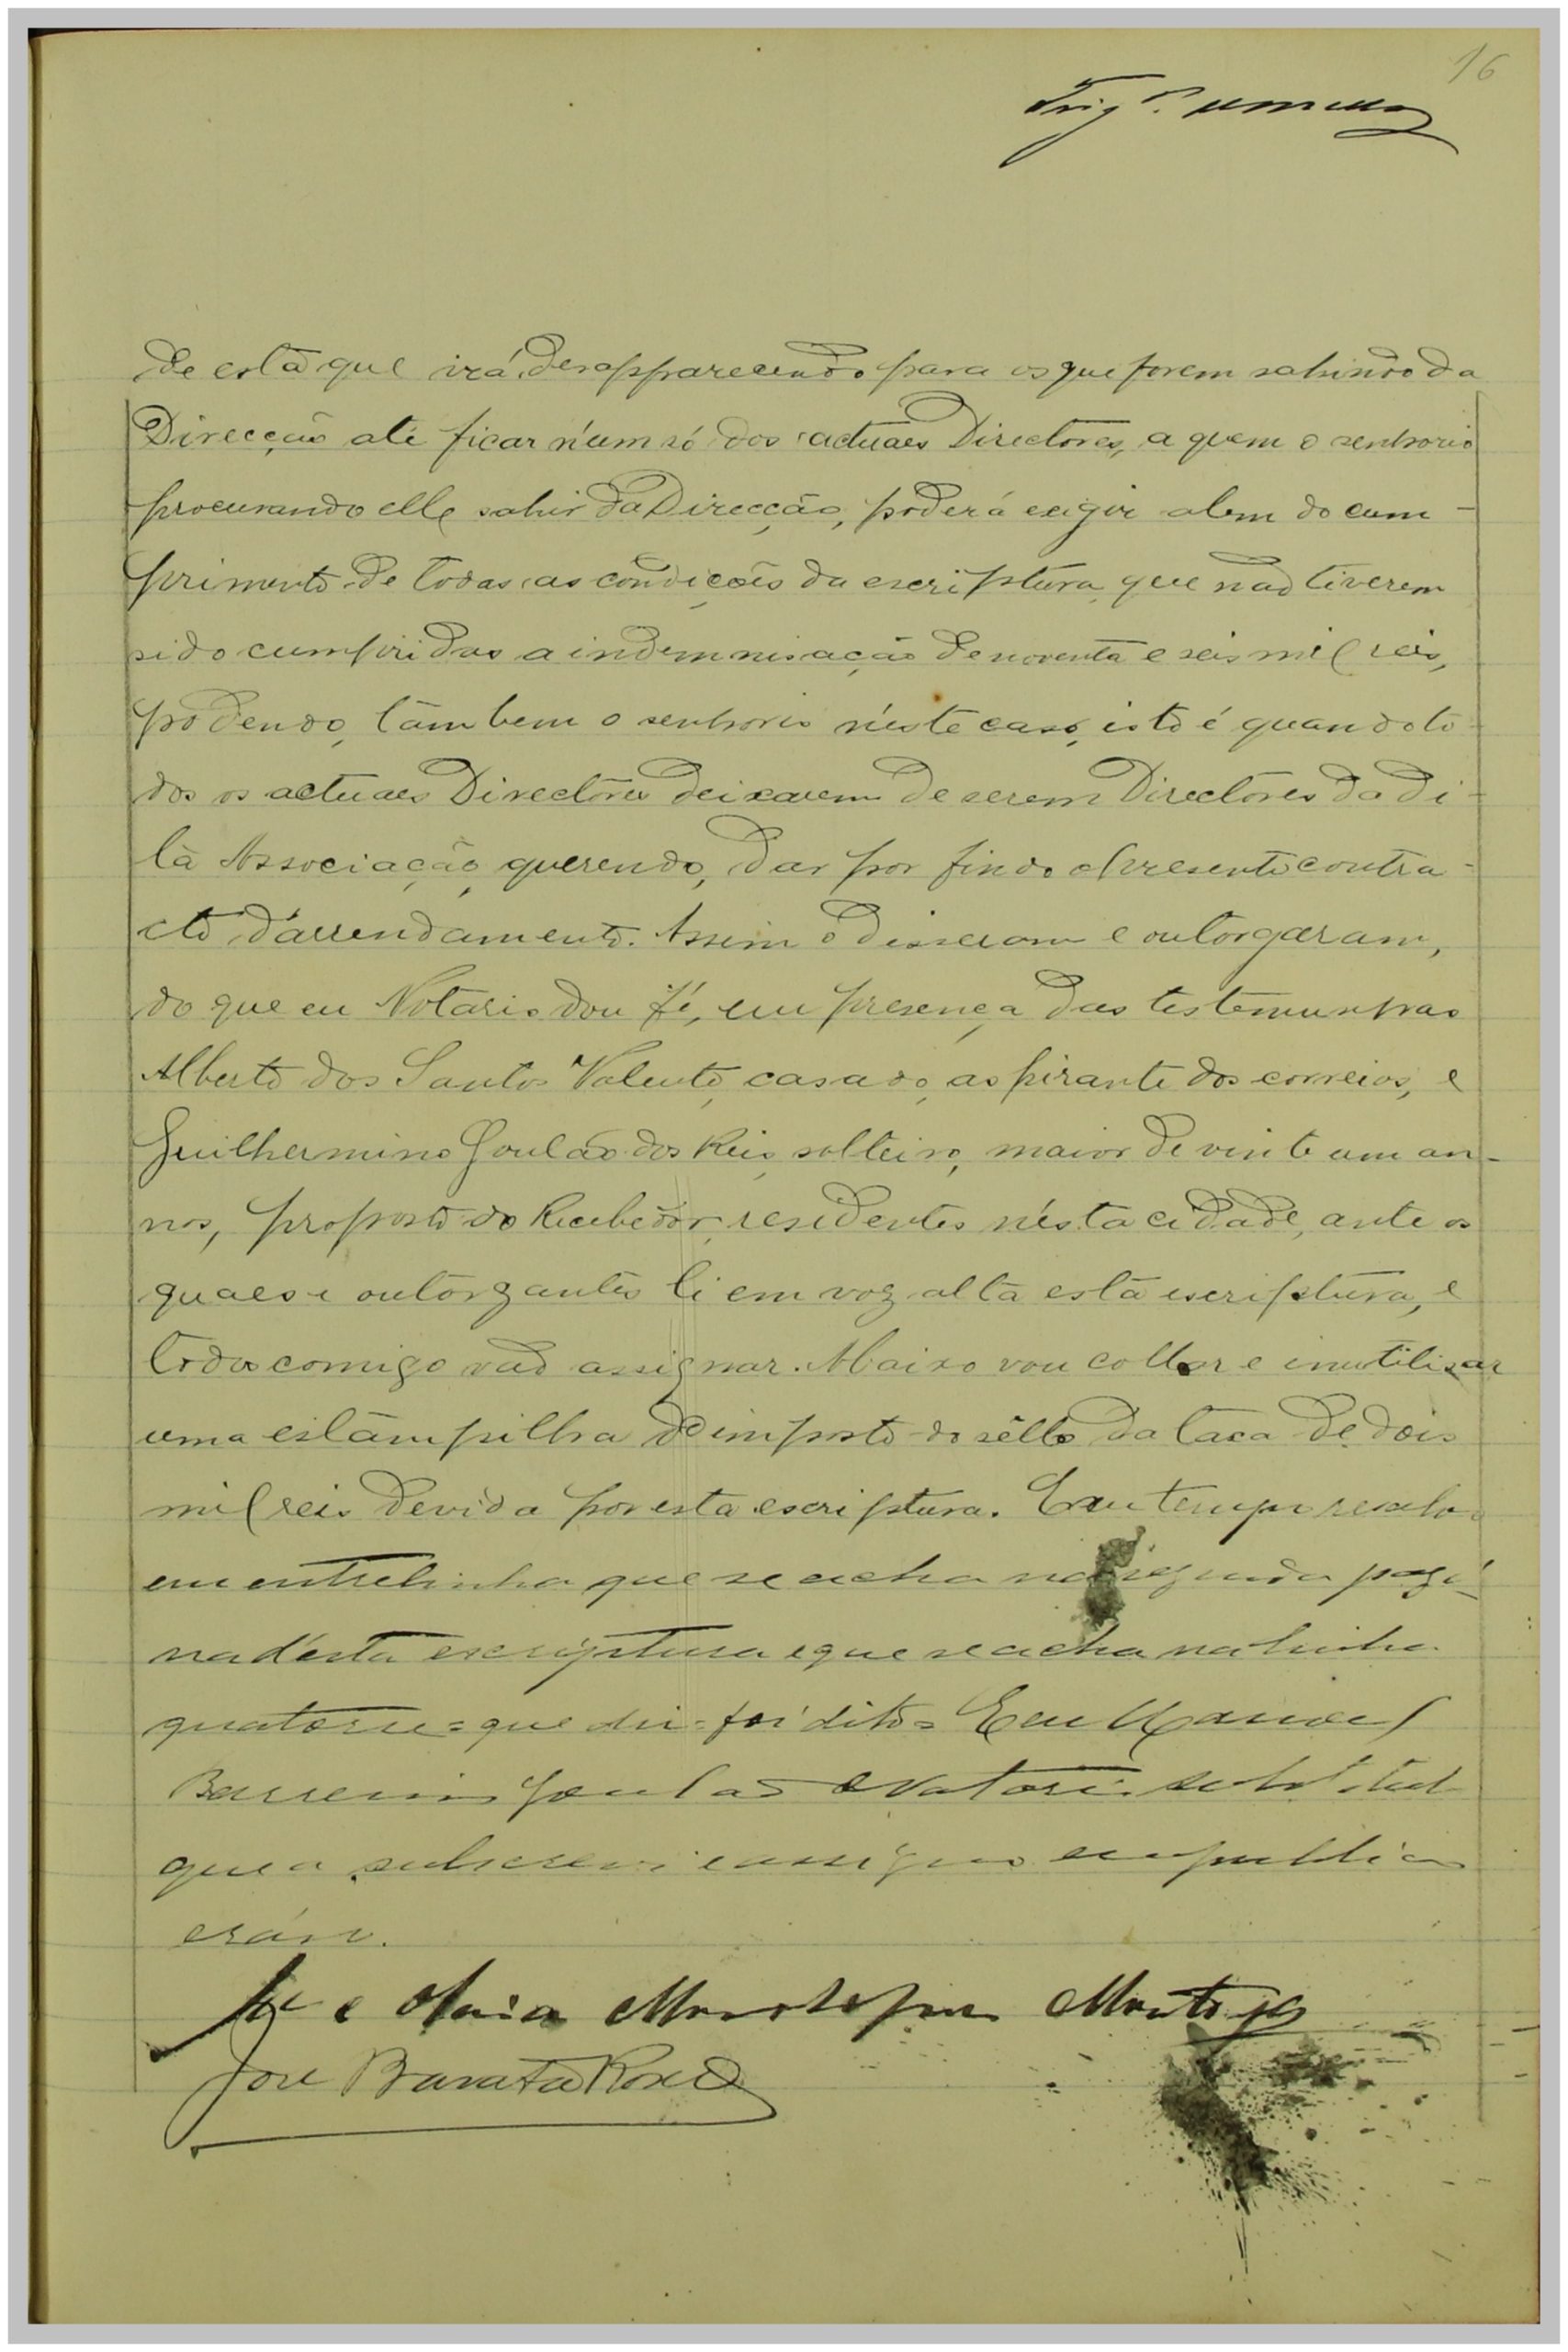 16
de esta que irá desapparecendo para os que forem sahindo da
Direcção até ficar n'um só dos actuaes Directores, a quem o senhorio
procurando elle sahir da Direcção, poderá exigir alem do cum-
primento de todas as condições da escriptura, que não tiverem
sido cumpridas a indemnisação de noventa e seis mil reis,
podendo, tambem o senhorio n'este caso, isto é quando to-
dos os actuaes Directores deixarem de serem Directores da di-
ta Associação, querendo, dar por findo o presente contra-
cto d'arrendamento. Assim o disseram e outorgaram,
do que eu Notario dou fé, em presença das testemunhas
Alberto dos Santos Valente, casado, aspirante dos correios, e
Guilhermino Goulão dos Reis, solteiro, maior de vinte um an-
nos, proposto do Recebedor, residentes n'ésta cidade, ante os
quaes e outorgantes li em voz alta esta escriptura, e
todos comigo vão assignar. Abaixo vou collar e inutilisar
uma estampilha de imposto do sêllo da taxa de dois
mil reis devida por esta escriptura. Em tempo resalvo
em entrelinha que se acha na segunda pagi-
na d'esta escriptura e que se acha na linha
quatorze = que diz = foi dito = E eu Manoel
Goulão o Notario
que a subscrevi e assigno em publico
e raso.
Maria Montojo
José Barata Roxo